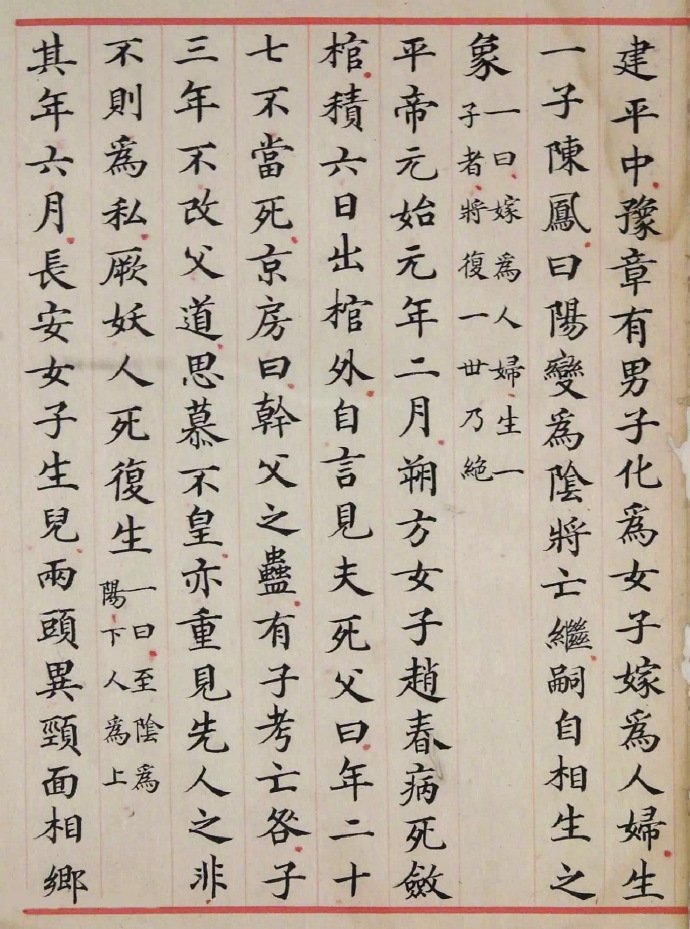 建平中豫章有男子化爲女子嫁爲人婦生
一子陳鳳曰陽變爲陰將亡繼嗣自相生之
象一曰嫁爲人婦生一
子者將復一世乃絶
平帝元始元年二月朔方女子趙春病死斂
棺積六日出棺外自言見夫死父曰年二十
七不當死京房曰幹父之蠱有子考亡咎子
三年不改父道思慕不皇亦重見先人之非
不則爲私厥妖人死復生一曰至陰爲
陽下人爲上
其年六月長安女子生兒兩頭異頸面相鄉